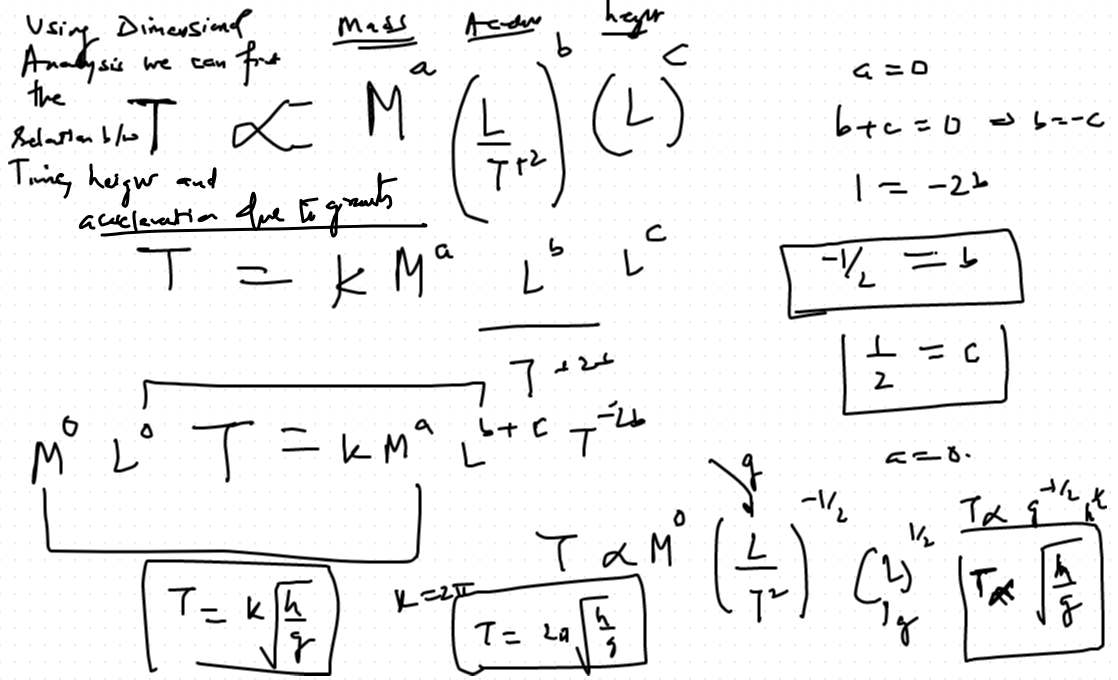 Using Dimensional
Analysis we can find
the
Relation b/w
Time, height and
acceleration due to gravity
Mass
height
T ∝ M^a (L/T^+2)^b (L)^c
T = k M^a L^b L^c / T^+2b
M^0 L^0 T = k M^a L^(b+c) T^-2b
T = k √(h/g)
a = 0
b+c = 0 ⇒ b = -c
1 = -2b
-1/2 = b
1/2 = c
a = 0.
g
T ∝ M^0 (L/T²)^-1/2 (L)^1/2
k = 2π
T = 2π √(h/g)
T ∝ √(h/g)